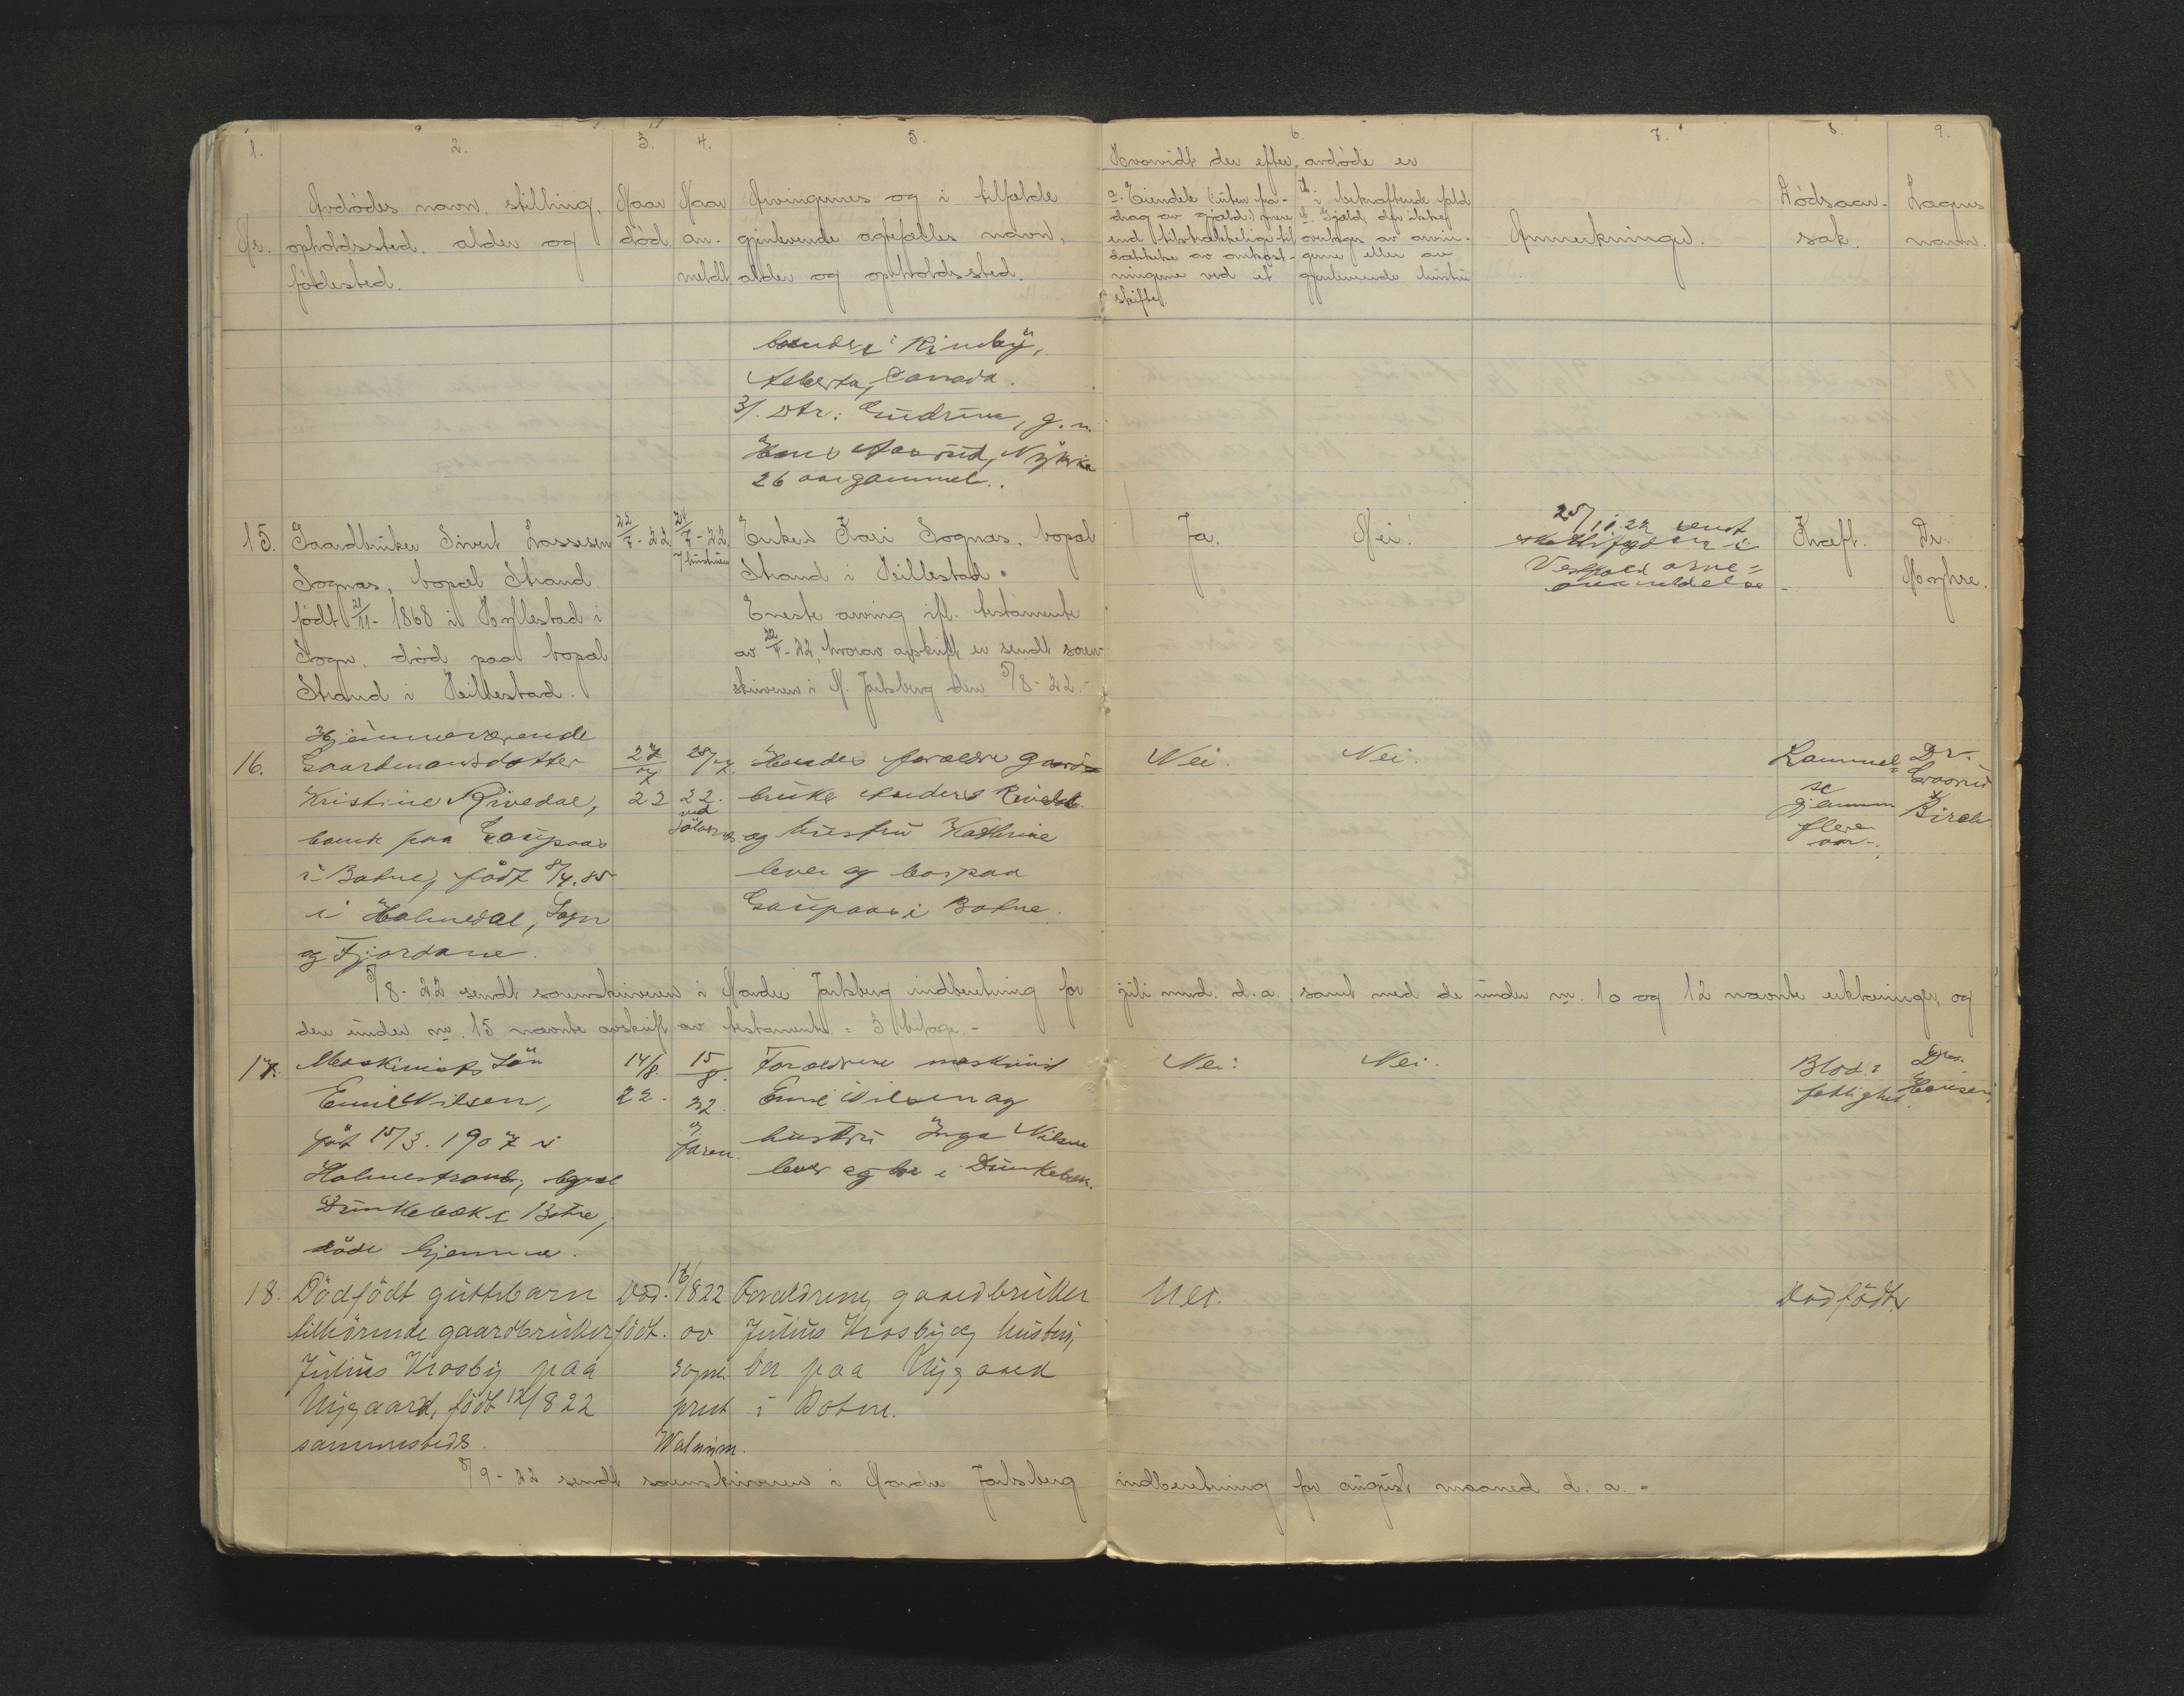 1. 2. 3. 4. 5. 6. 7. 8. 9.
Hvorvidt der efter avdøde er
Nr.
Avdødes navn, stilling,
opholdssted, alder og
fødested.
Naar
død
Naar
an-
meldt
Arvingernes og i tilfælde
gjenlevende egtefælles navn,
alder og opholdssted.
a. Eiendele (uten fra-
drag av gjæld) mere
end tilstrækkelige til
dækkelse av omkost-
ningerne ved et
skifte.
b. i bekræftende fald
Gjæld, der ikke
overtages av arvin-
gerne eller av
gjenlevende hustru
Anmerkninger.
Dødsaar-
sak.
Lægens
navn.
bonde i Rimby,
Alberta, Canada.
3/. Dtr: Gudrun, g. m.
Hans Aasrud, Nykirke
26 aar gammel.
15.
Gaardbruker Sivert Lassesen
Sognæs, bopæl Strand
født 21/11- 1868 i Hyllestad i
Sogn, død paa bopæl
Strand i Hillestad.
22/7-22
24/7-22
Enken Kari Sognæs, bopæl
Strand i Hillestad.
Eneste arving ifl. testamente
av 22/4-22, hvorav avskrift er sendt soren-
skriveren i N. Jarlsberg den 5/8-22.-
Ja.
Nei.
25/10.22 sendt
skattefogden i
Vestfold arve-
anmeldelse
Kræft.
Dr.
Myhre.
16.
Hjemmeværende
Gaardmansdatter
Kristine Rivedal,
boende paa Gaupaas
i Botne, født 8/4.85
i Holmedal, Sogn
og Fjordane.
27/7
22
28/7.
22.
ved
Hendes forældre gaard-
bruker Anders Rivedal
og hustru Kathrine
lever og bor paa
Gaupaas i Botne.
Nei.
Nei.
Lammel-
se
gjennem
flere
aar.
Dr.
Graarud
&
Birch
5/8-22 sendt sorenskriveren i Nordre Jarlsberg indberetning for juli mnd. d.a., samt med de under nr. 10 og 12 nævnte erklæringer, og
den under nr. 15 nævnte avskrift av testamente = 3 bilage.-
17.
Maskinists søn
Emil Nilsen,
føt 15/3.1907 i
Holmestrand, bopæl
Dunkebæk i Botne,
døde hjemme.
14/8.
22.
15/8.
22
af
faren.
Forældrene maskinist
Emil Nilsen og
hustru Inga Nilsen
lever og bor i Dunkebæk.
Nei.
Nei.
Blod-
fattighet.
Dr.
Hansen
18.
Dødfødt guttebarn
tilhørende gaardbruker
Julius Krosby paa
Nygaard, født 12/8 22
sammesteds.
Død-
født.
16/8 22
av
sogne
prest
Walnum.
Forældrene, gaardbruker
Julius Krosby og hustru,
bor paa Nygaard
i Botne.
Nei.
Dødfødt
8/9-22 sendt sorenskriveren i Nordre Jarlsberg indberetning for august maaned d. a. -